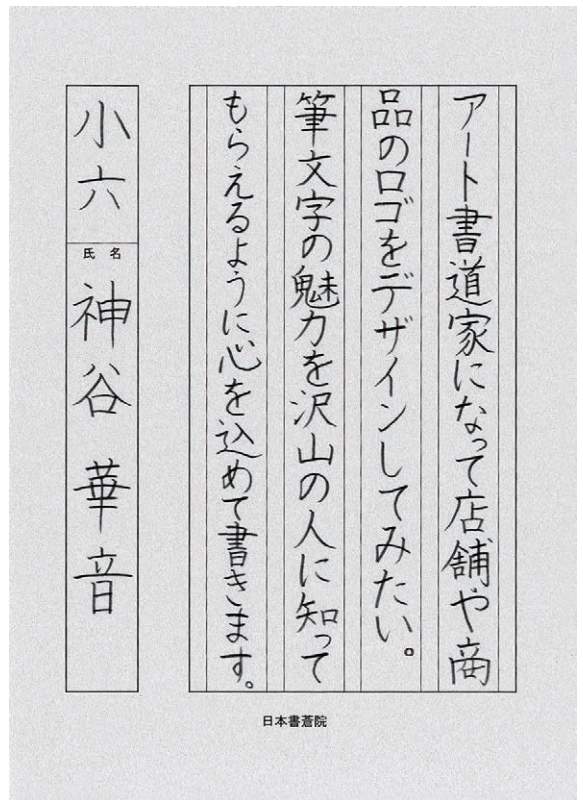 アート書道家になって店舗や商
品のロゴをデザインしてみたい。
筆文字の魅力を沢山の人に知って
もらえるように心を込めて書きます。
小六
氏名
神谷 華音
日本書蒼院